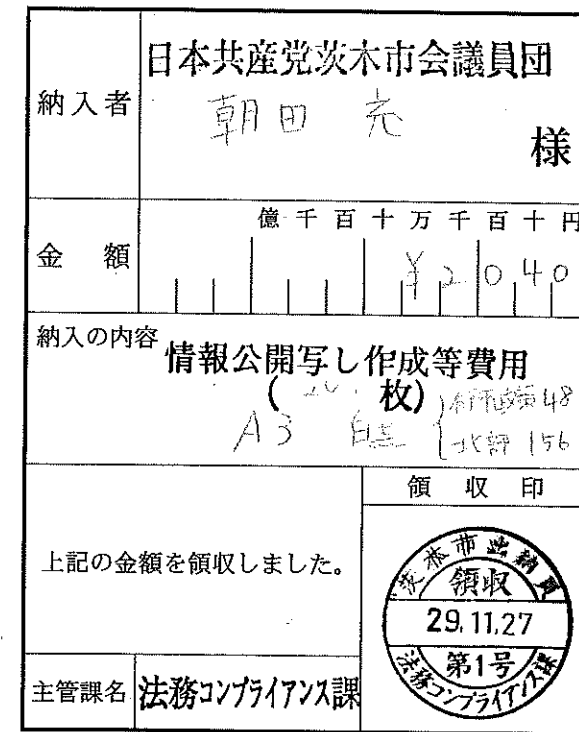 日本共産党茨木市会議員団
納入者
朝田 充
様
億千百十万千百十円
金額
¥2040
納入の内容
情報公開写し作成等費用
( 枚)
A3 白黒
48
156
領収印
上記の金額を領収しました。
茨木市出納員
領収
29.11.27
第1号
法務コンプライアンス課
主管課名 法務コンプライアンス課